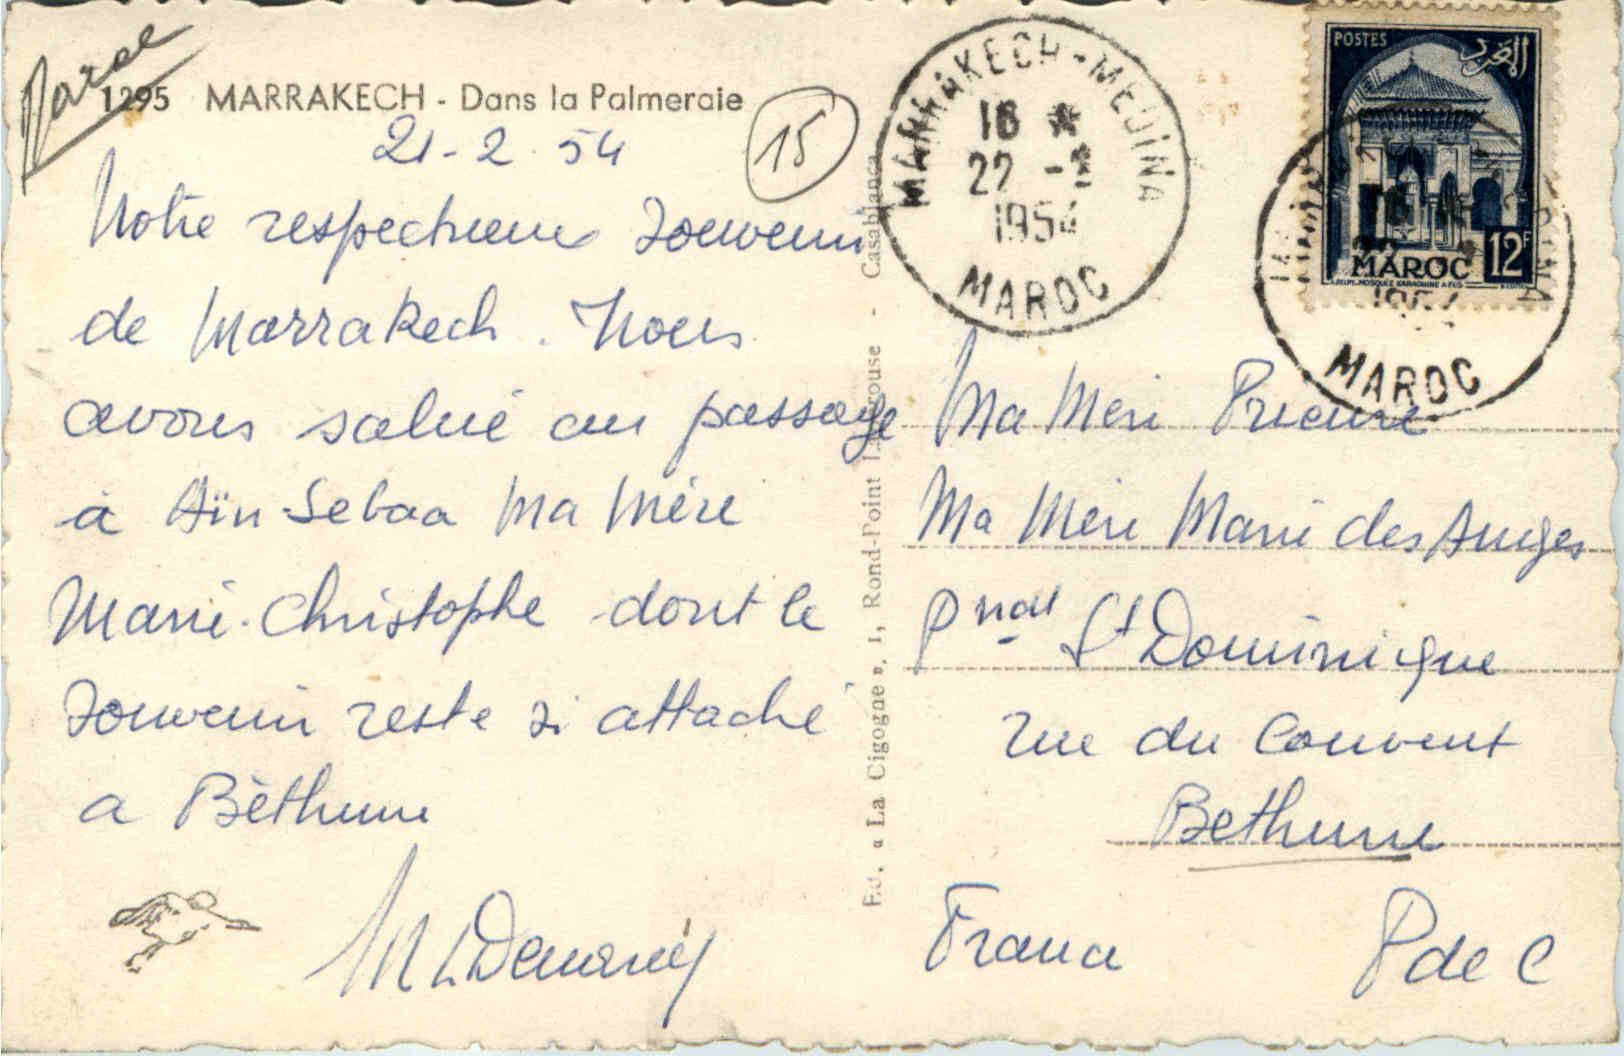 Maroc
1295 MARRAKECH - Dans la Palmeraie
21-2.54
15
Notre respectueux souvenir
de Marrakech. Nous
avons salué au passage
à Aïn-Sebaa Ma Mère
Marie-Christophe dont le
souvenir reste si attaché
a Béthune
Ed. « La Cigogne », 1, Rond-Point - Casablanca
MARRAKECH-MEDINA
18 *
22 -2
1954
MAROC
POSTES
المغرب
MAROC
12F
MAROC
Ma Mère Prieure
Ma Mère Marie des Anges
Pnat St Dominique
rue du Couvent
Bethune
France P de C